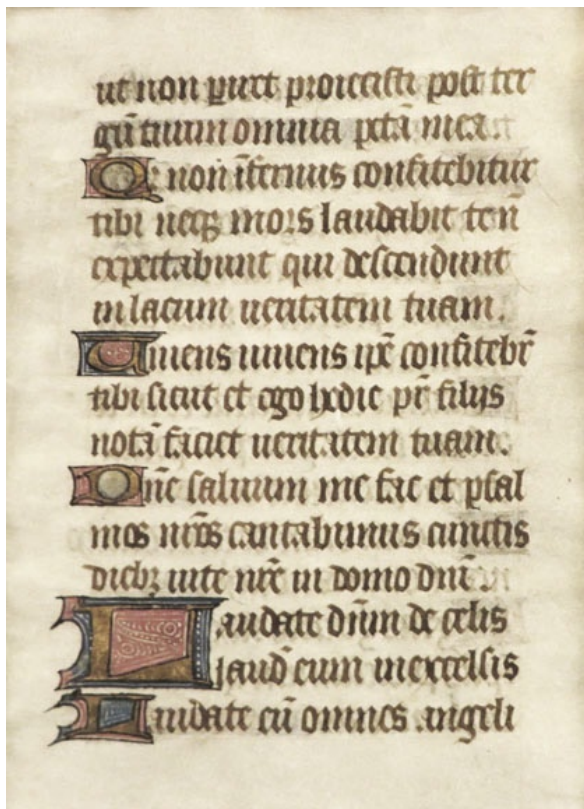 ut non piret proiecisti post ter
gũ tuum omnia pctã mea
Qr non ĩfernus confitebitur
tibi neqꝫ mors laudabit te nͫ
expectabunt qui descendunt
in lacum ueritatem tuam.
Uiuens uiuens ip̃e confitebr̃
tibi sicut et ego hodie pr̃ filijs
notã faciet ueritatem tuam.
Dñe saluum me fac et psal
mos nr̃os cantabimus cunctis
diebꝫ uite nr̃e in domo dñi
Laudate dñm de celis
laud̃ eum in excelsis
Laudate eũ omnes angeli